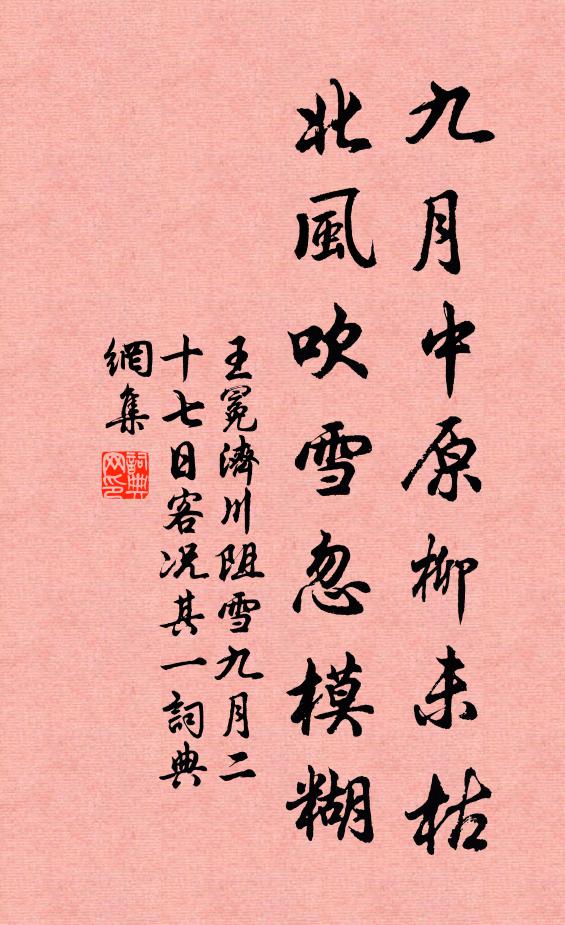 九月中原柳未枯
北風吹雪忽模糊
王冕濟川阻雪九月二
十七日客况其一詞典
網集
詞典
网印